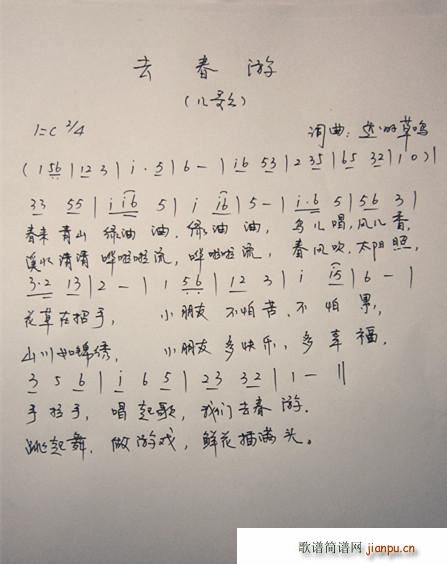 去春游
（儿歌）
1=C 2/4 词曲：
（1 56 | 12 3 | i · 5 | 6 - | i6 53 | 2 35 | 65 32 | 1 0）|
33 55 | i i6 5 | i i6 | 5 - | i·6 5 | 56 3 |
春来青山绿油油，绿油油，鸟儿唱，风儿香，
溪水清清哗啦啦流，哗啦啦流，春风吹，太阳照，
3·2 13 | 2 - | 1 56 | 12 3 | i i5 | 6 - |
花草在招手，小朋友不怕苦，不怕累，
山川如锦绣，小朋友多快乐，多幸福，
3 5 6 | i 6 5 | 23 32 | 1 - ||
手拉手，唱起歌，我们去春游．
跳起舞，做游戏，鲜花插满头。
歌谱简谱网 jianpu.cn